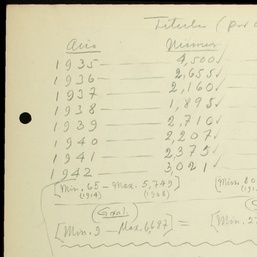 Titulos (por
Año Numero
1935 — 4,500 ✓
1936 — 2,655 ✓
1937 — 2,160 ✓
1938 — 1,895 ✓
1939 — 2,710 ✓
1940 — 2,207 ✓
1941 — 2,375 ✓
1942 — 3,021 ✓
[Min. 65 — Max. 5,749] [Min. 20
(1914) (1928) (191
Gral.
[Min. 9 — Max. 6697] = [Min. 2